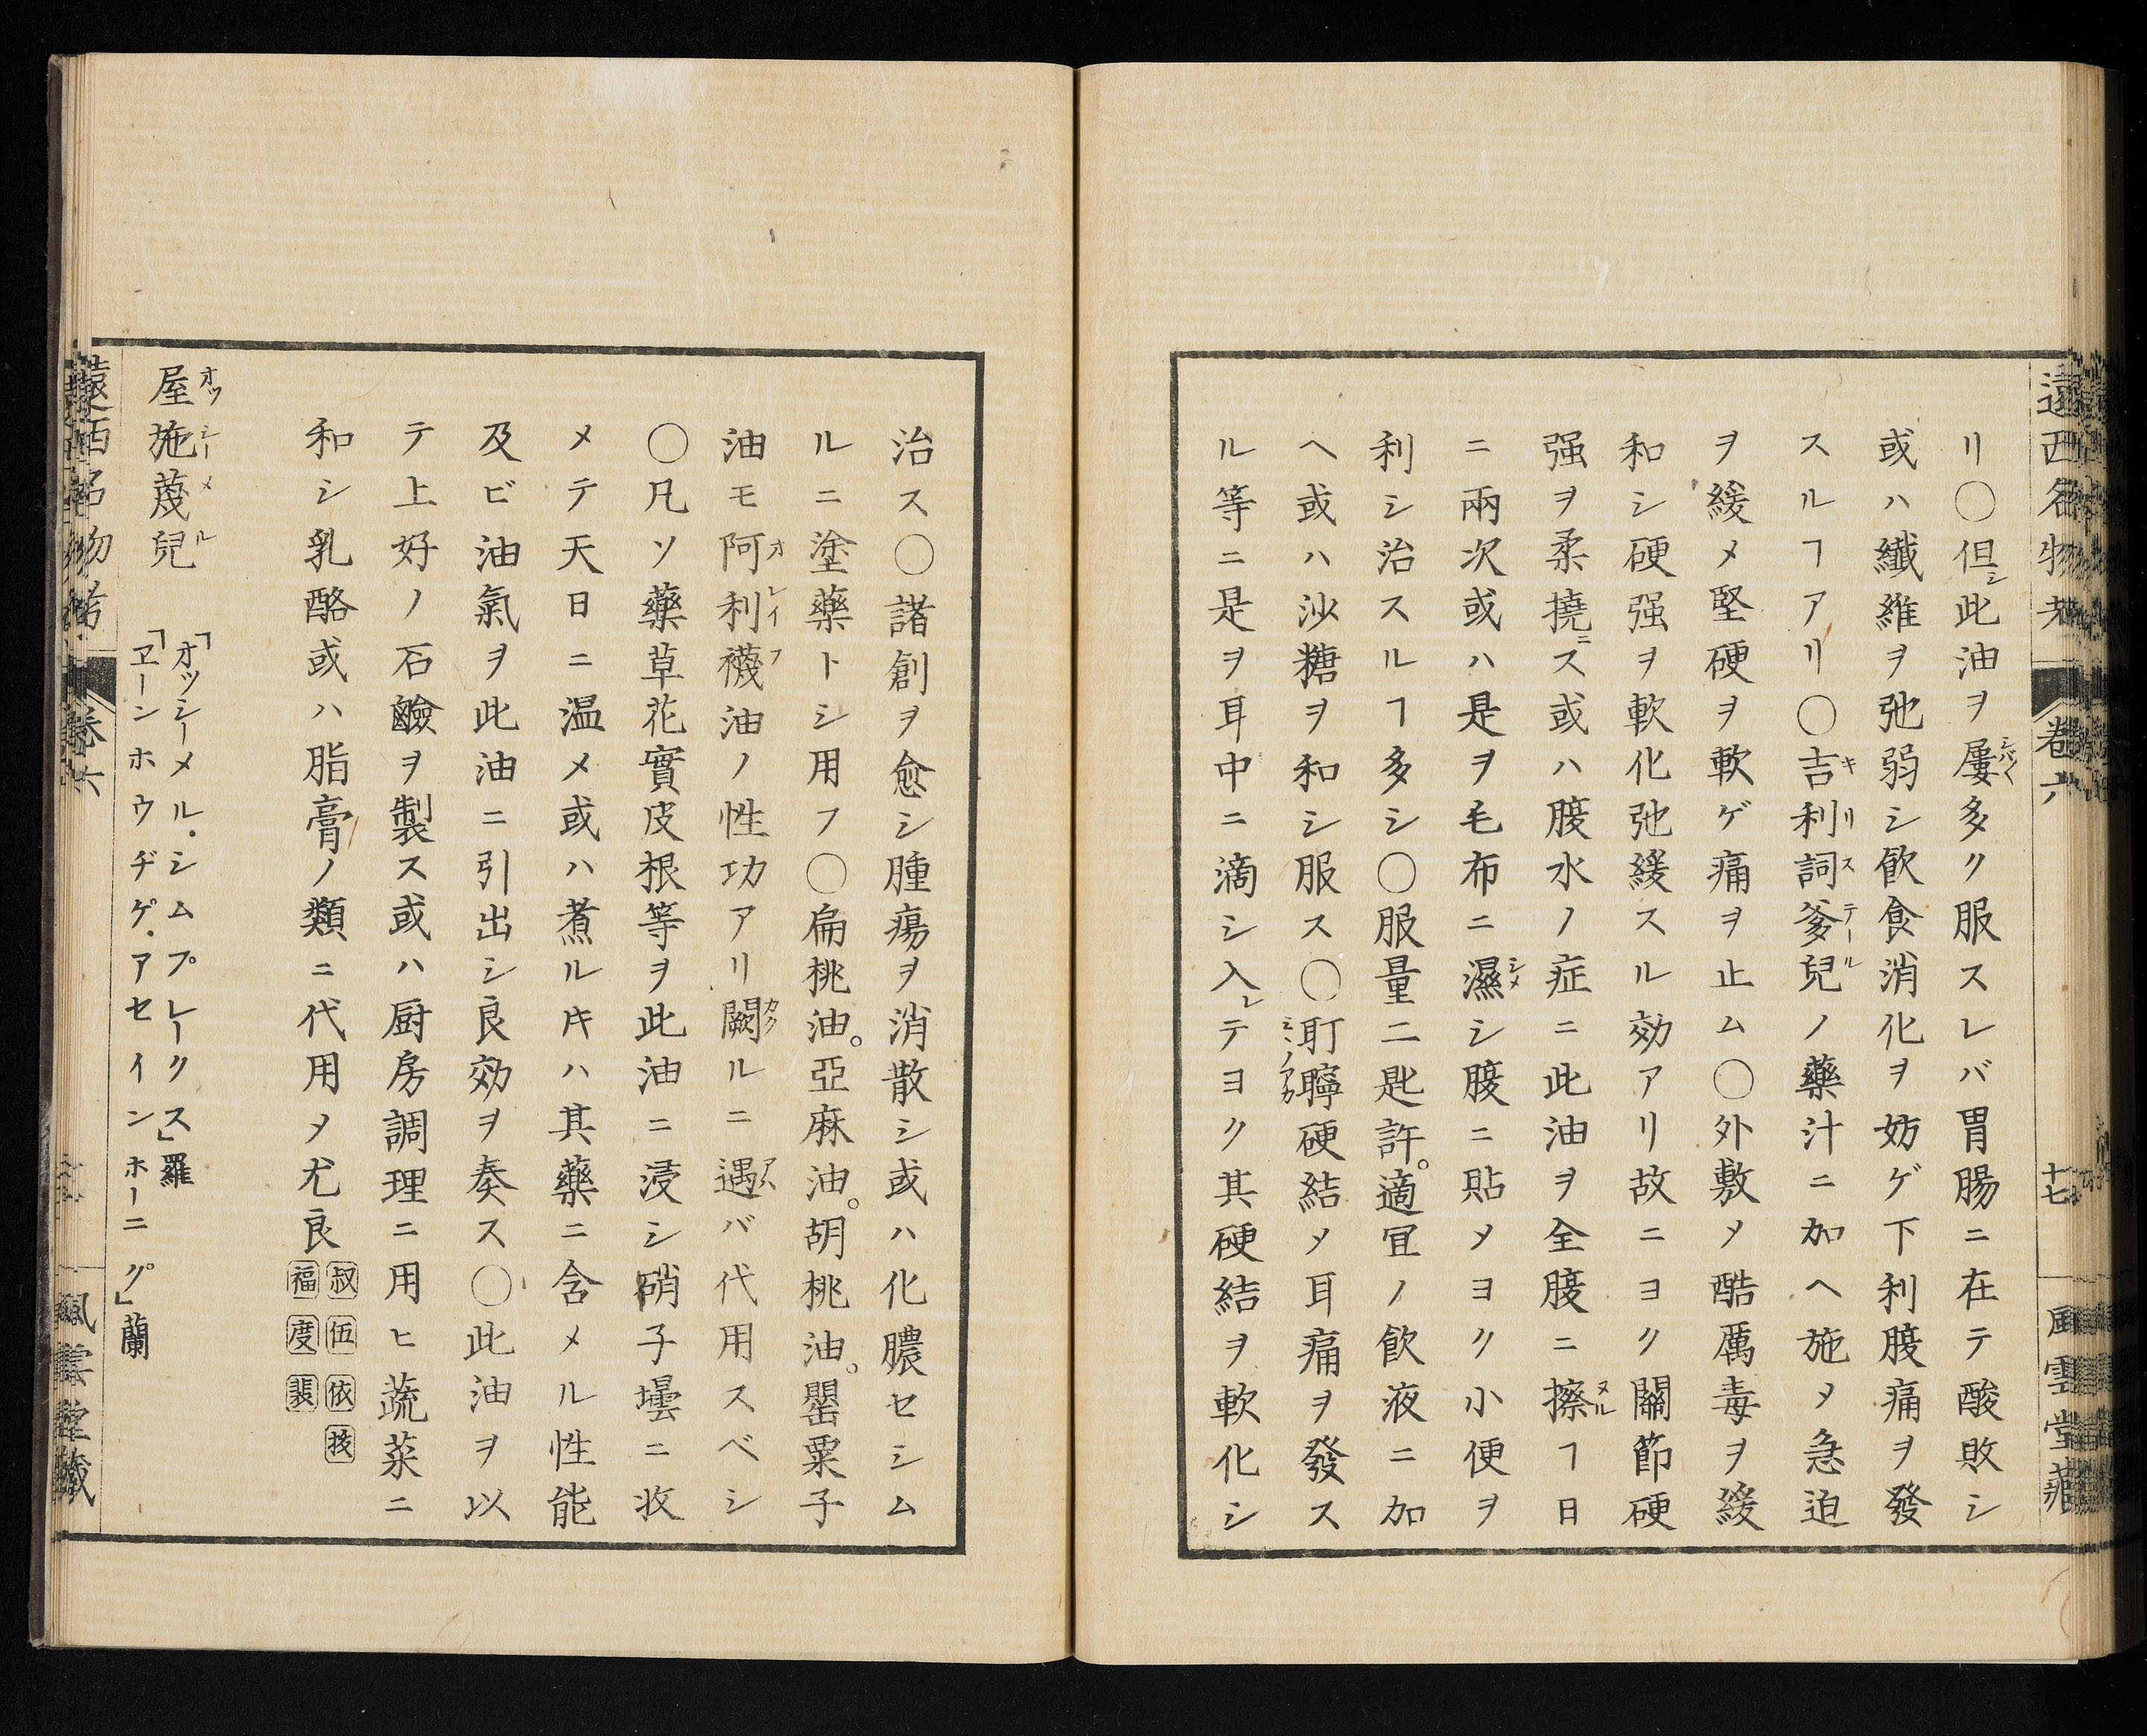 遠西名物考 卷六 十七 風雲堂藏
リ〇但シ此油ヲ屢多ク服スレバ胃腸ニ在テ酸敗シ
或ハ纎維ヲ弛弱シ飮食消化ヲ妨ゲ下利腹痛ヲ發
スルヿアリ〇吉利詞爹兒ノ藥汁ニ加ヘ施メ急迫
ヲ緩メ堅硬ヲ軟ゲ痛ヲ止ム〇外敷メ酷厲毒ヲ緩
和シ硬强ヲ軟化弛緩スル効アリ故ニヨク關節硬
强ヲ柔撓ニス或ハ腹水ノ症ニ此油ヲ全腹ニ擦ヿ日
ニ兩次或ハ是ヲ毛布ニ濕シ腹ニ貼メヨク小便ヲ
利シ治スルヿ多シ〇服量二匙許。適宜ノ飮液ニ加
ヘ或ハ沙糖ヲ和シ服ス〇耵聹硬結メ耳痛ヲ發ス
ル等ニ是ヲ耳中ニ滴シ入レテヨク其硬結ヲ軟化シ
治ス〇諸創ヲ愈シ腫瘍ヲ消散シ或ハ化膿セシム
ルニ塗藥トシ用フ〇扁桃油。亞麻油。胡桃油。罌粟子
油モ阿利襪油ノ性功アリ闕ルニ遇バ代用スベシ
〇凡ソ藥草花實皮根等ヲ此油ニ浸シ硝子壜ニ收
メテ天日ニ温メ或ハ煮ルキハ其藥ニ含メル性能
及ビ油氣ヲ此油ニ引出シ良効ヲ奏ス〇此油ヲ以
テ上好ノ石鹼ヲ製ス或ハ厨房調理ニ用ヒ蔬菜ニ
和シ乳酪或ハ脂膏ノ類ニ代用メ尤良 叔伍依技 福度裴
屋施蔑兒 「オッシーメル・シムプレークス」羅
「ヱーンホウヂゲ・アセインホーニグ」蘭
遠西名物考 卷六 風雲堂藏